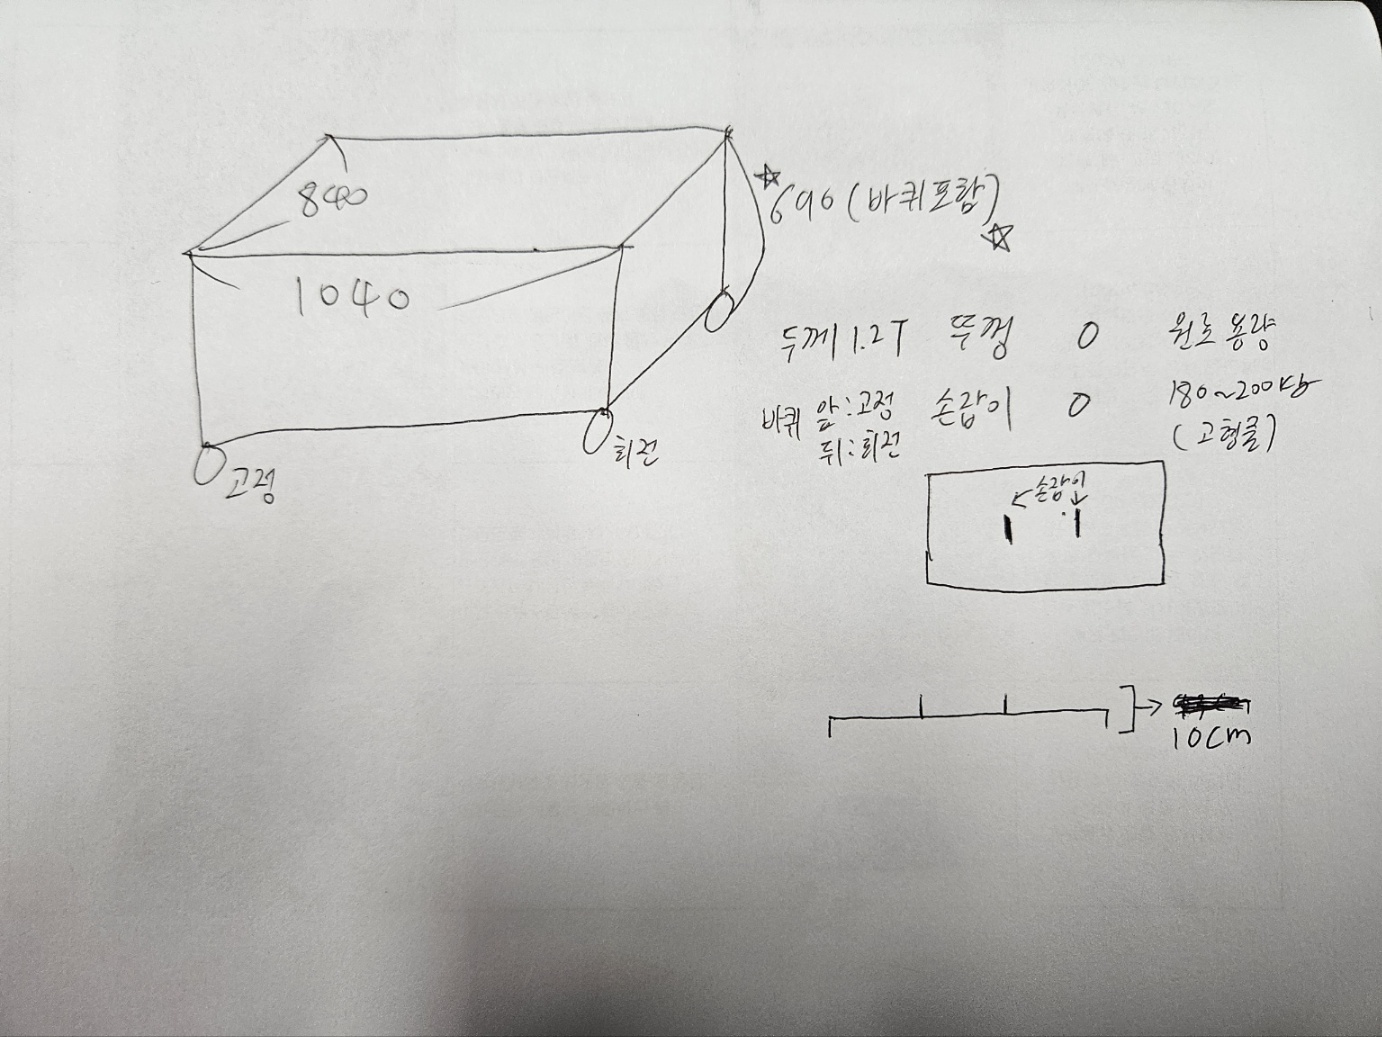 840
1040
690 (바퀴포함)
고정
회전
두께 1.2T 뚜껑 O 원료 용량
바퀴 앞:고정 손잡이 O 180~200kg
뒤:회전 (고형물)
손잡이
10cm